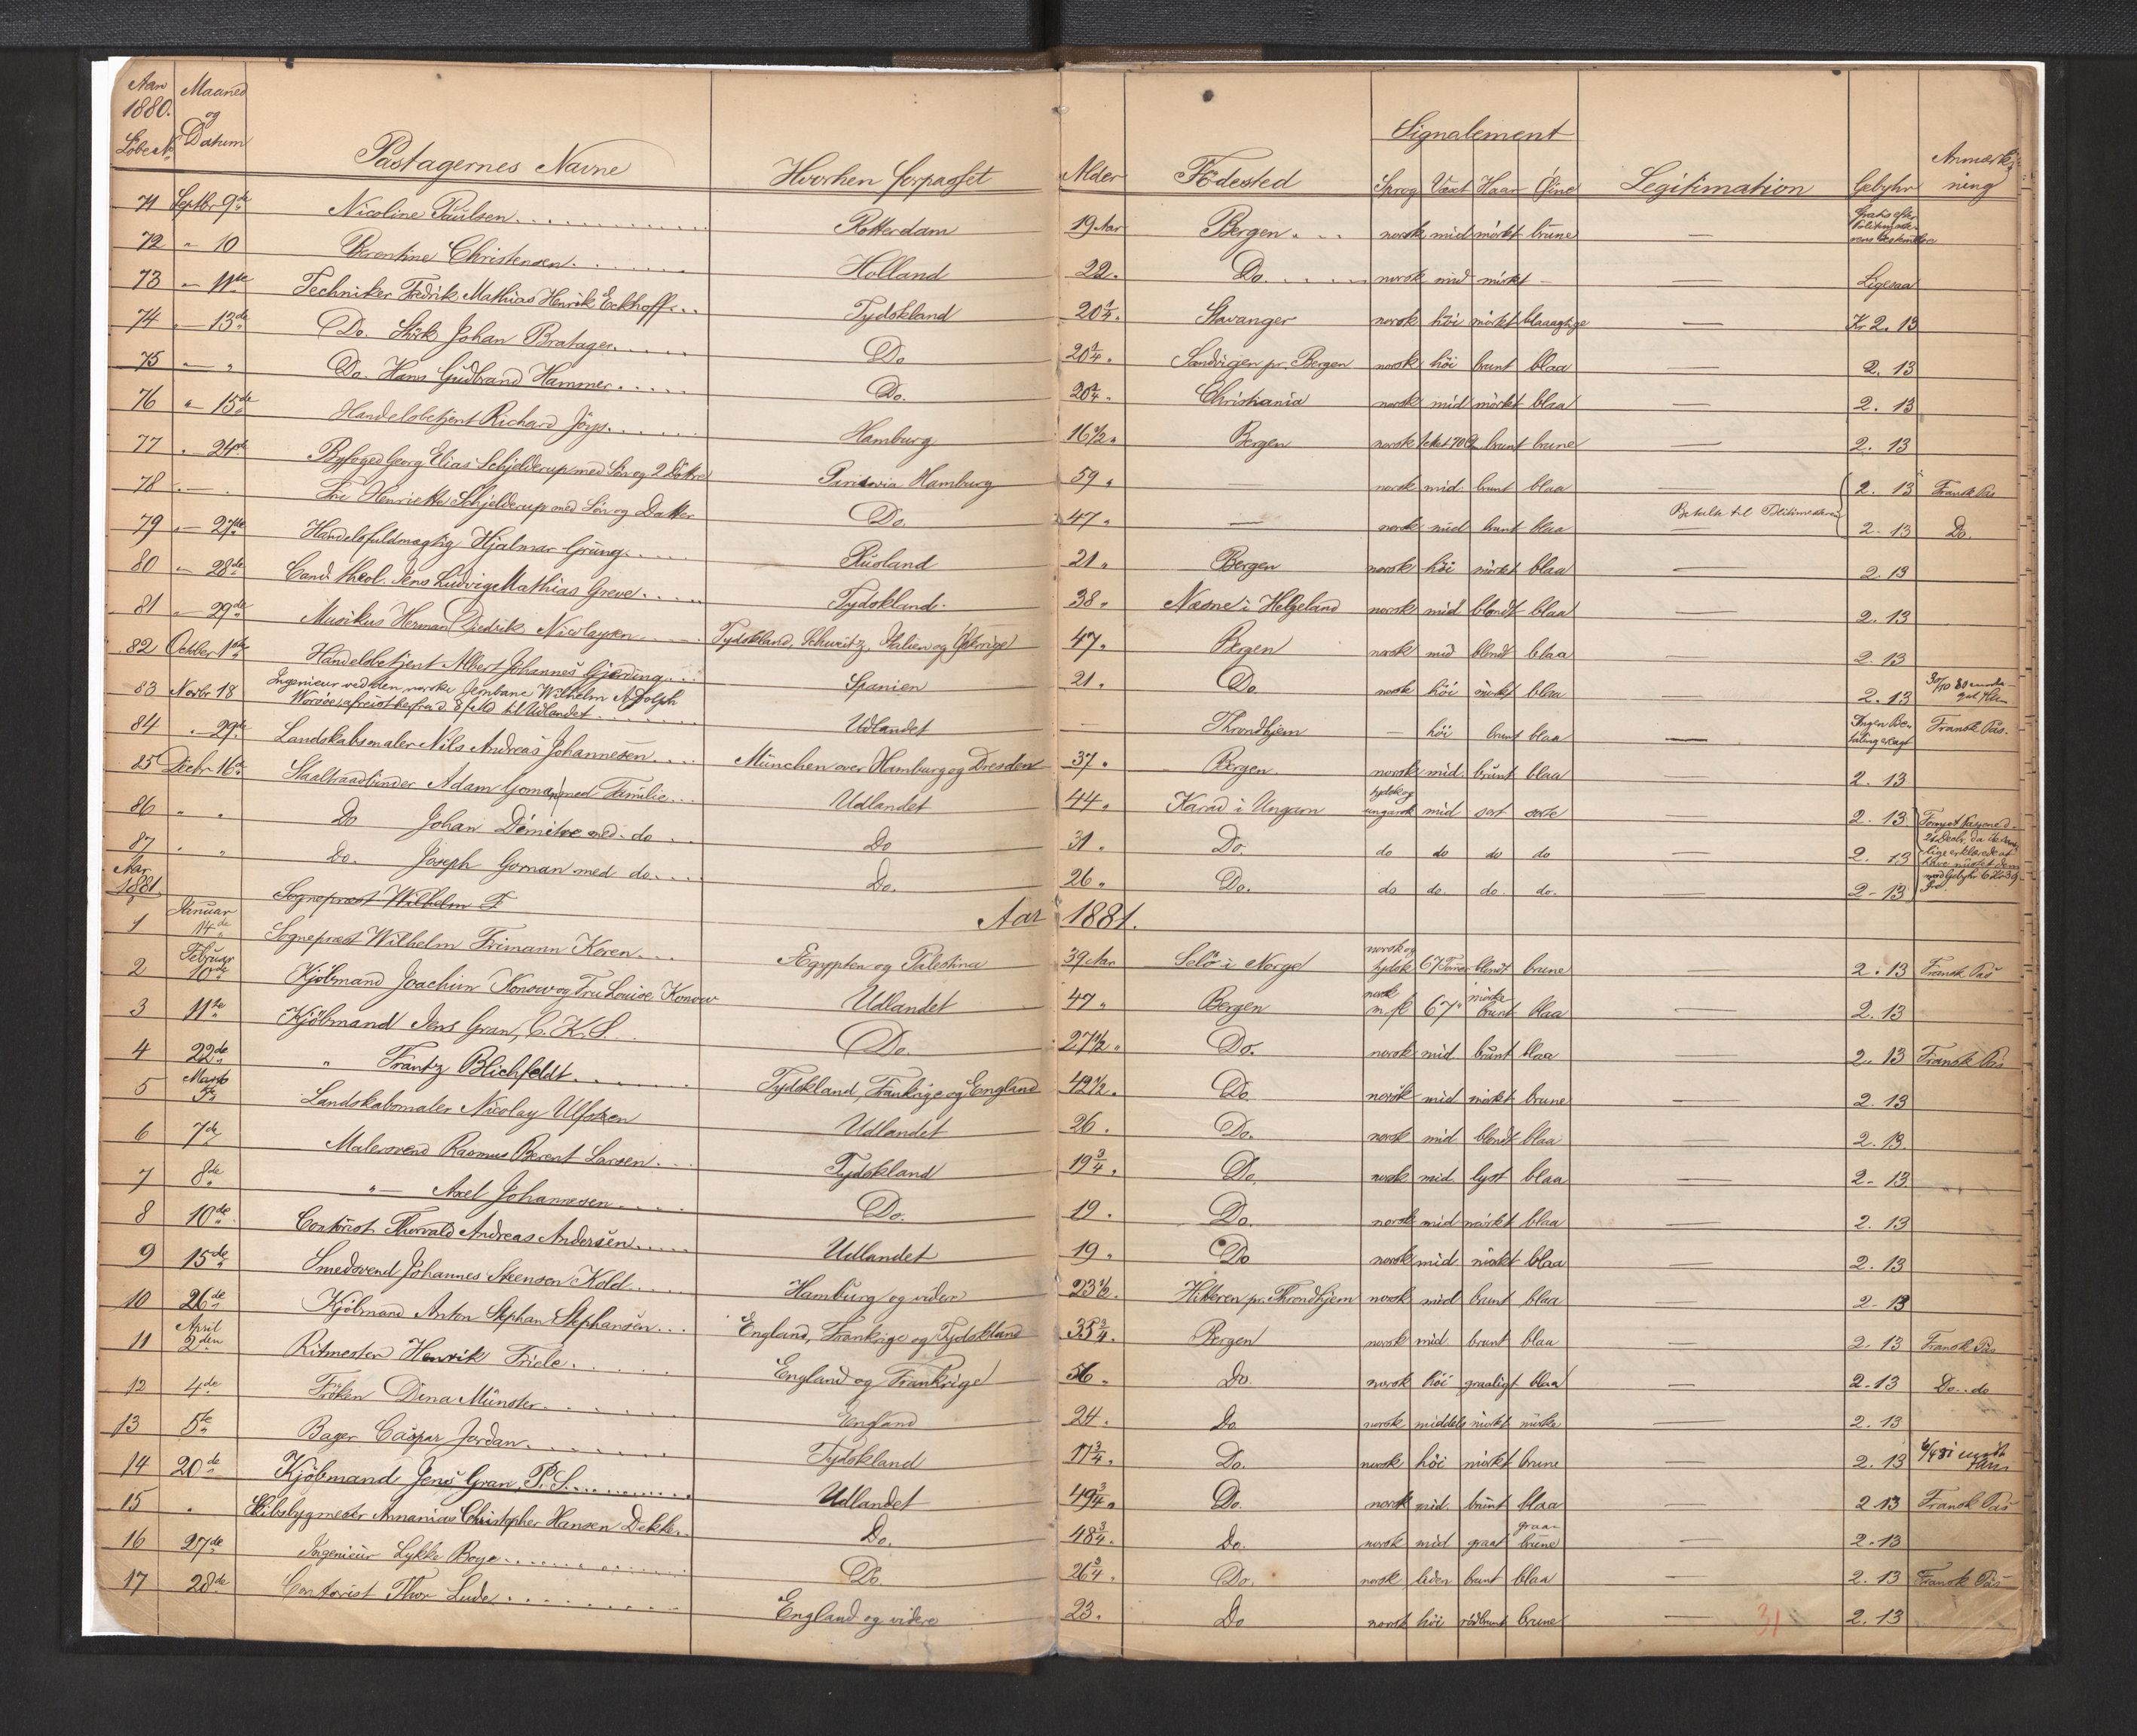 Aar 1880. Löbe No Maaned og Datum Passagernes Navne Hvorhen forpasset Alder Födested Signalement Sprog Væxt Haar Öine Legitimation Gebyhr Anmærkning
71 Septbr 9de Nicoline Paulsen Rotterdam 19 Aar Bergen norsk mid mörkt brune — Gratis efter
72 " 10 Berentine Christensen Holland 22. Do. norsk mid mörkt — — Ligesaa
73 " 11te Techniker Fredrik Mathias Henrik Eckhoff Tydskland 20 1/4. Stavanger norsk höi mörkt blaaagtige — Kr 2. 13
74 " 13de Do. Johan Bratager Do 20 1/4. Sandvigen pr. Bergen norsk höi brunt blaa — 2. 13
75 " " Do. Hans Gudbrand Hammer Do. 20 1/4. Christiania norsk mid mörkt blaa — 2. 13
76 " 15de Handelsbetjent Richard Jörgs. Hamburg 16 1/2. Bergen norsk brunt brune — 2. 13
77 " 24de Byfoged Georg Elias Schjelderup med Sön og 2 Döttre Paris via Hamburg 59 " — norsk mid. brunt blaa — 2. 13 Fransk Pas
78 " " Fru Henriette Schjelderup med Sön og Datter Do. 47 " — norsk mid brunt blaa Betalt til Politimesteren 2. 13 Do.
79 " 27de Handelsfuldmægtig Hjalmar Grung Rusland 21 " Bergen norsk höi mörkt blaa — 2. 13
80 " 28de Cand. theol. Jens Ludvig Mathias Greve Tydskland 38 " Næsne i Helgeland norsk mid blondt blaa — 2. 13
81 " 29de Musikus Herman Diedrik Nicolaysen Tydskland, Schweitz, Italien og 47 " Bergen norsk mid blondt blaa — 2. 13
82 October 1ste Handelsbetjent Albert Johannes Gjerding Spanien 21. Do. norsk höi mörkt blaa — 2. 13
83 Novbr 18 Ingenieur ved den norske Jernbane Wilhelm Adolph
Worsöe, afreist herfra d. 8/ til Udlandet Udlandet — Throndhjem — höi brunt blaa — Ingen Betaling erlagt Fransk Pas.
84 " 29de Landskabsmaler Nils Andreas Johannesen München over Hamburg og Dresden 37. Bergen norsk mid. brunt blaa — 2. 13
85 Decbr 16de Staaltraadbinder Adam Goman med Familie Udlandet 44. Karad i Ungarn tydsk og ungarsk mid sort sorte — 2. 13
86 " " Do Johan Demitre med do Do 31. Do. do do do do — 2. 13
87 " " Do. Joseph Goman med do Do. 26 " Do. do do. do. do. — 2. 13
Aar 1881 Sognepræst Wilhelm F Aar 1881.
1 Januar 14de Sognepræst Wilhelm Frimann Koren Ægypten og Palestina 39 Aar Selö i Norge norsk og tydsk 67 Tomer blondt brune — 2. 13 Fransk Pas
2 Februar 10de Kjöbmand Joachim Konow og Fru Louise Konow Udlandet 47 " Bergen norsk 67" mörke brunt blaa — 2. 13
3 11te Kjöbmand Jens Gran, C. K. S. Do. 27 1/2 " Do. norsk mid. brunt blaa — 2. 13 Fransk Pas
4 22de " Frantz Blichfeldt Tydskland, Frankrige og England 42 1/2. Do. norsk mid mörkt brune — 2. 13
5 Marts Landskabsmaler Nicolay Ulfsten Udlandet 26. Do. norsk mid blondt blaa — 2. 13.
6 7de Malersvend Rasmus Berent Larsen Tydskland 19 3/4. Do. norsk mid. lyst blaa — 2. 13
7 8de " — Axel Johannesen Do. 19. Do. norsk mid mörkt blaa — 2. 13
8 10de Contorist Thorvald Andreas Andersen Udlandet 19 " Do norsk mid. mörkt blaa — 2. 13
9 15de Smedsvend Johannes Steenson Kold Hamburg og videre 23 1/2. Hitteren pr. Throndhjem norsk mid brunt blaa — 2. 13
10 26de Kjöbmand Anton Stephan Stephansen England, Frankrige og Tydskland 35 3/4. Bergen norsk mid brunt blaa — 2. 13 Fransk Pas
11 April 2den Ritmester Henrik Friele England og Frankrige 56 " Do. norsk höi graaligt blaa — 2. 13 Do. do
12 4de Fröken Dina Münster England 24. Do. norsk middels mörkt mörke — 2. 13
13 5te Bager Caspar Jordan Tydskland 17 3/4. Do. norsk höi mörkt brune — 2. 13
14 20de Kjöbmand Jens Gran, P. S. Udlandet 49 3/4. Do. norsk mid. brunt blaa — 2. 13 Fransk Pas
15 " Skibsbygmester Annanias Christopher Hansen Dekke Do. 48 3/4. Do. norsk mid graat graa brune — 2. 13
16 27de Ingenieur Lykke Boye Do. 26 3/4. Do. norsk liden brunt blaa — 2. 13 Fransk Pas
17 28de Contorist Thor Lude England og videre 23. Do norsk höi rödbrunt brune — 2. 13
31